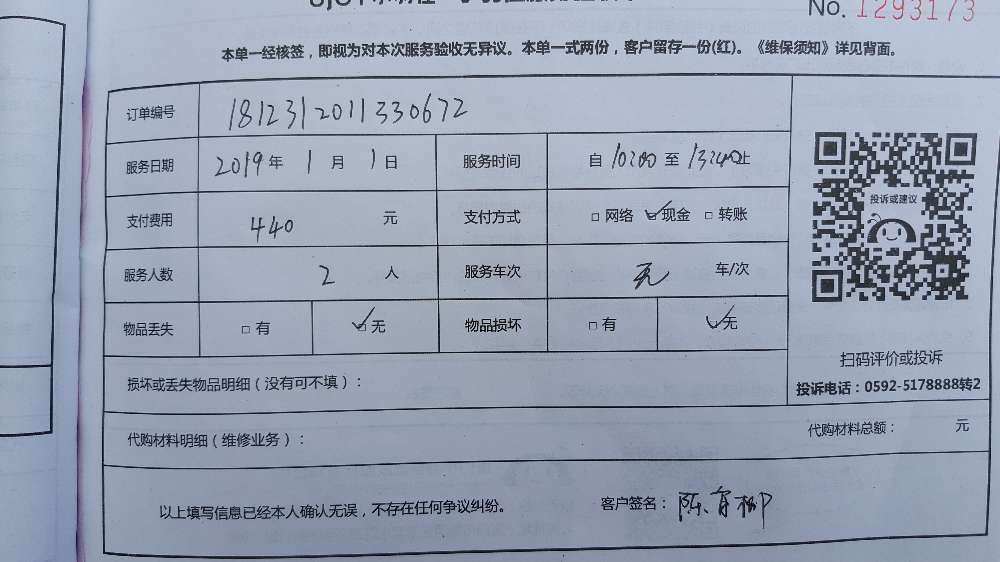 No. 1293173
本单一经核签，即视为对本次服务验收无异议。本单一式两份，客户留存一份(红)。《维保须知》详见背面。
订单编号 1812312011330672
服务日期 2019年1月1日 服务时间 自10:00至13:40止
支付费用 440 元 支付方式 □网络 ☑现金 □转账
服务人数 2 人 服务车次 无 车/次
物品丢失 □有 ☑无 物品损坏 □有 ☑无
投诉或建议
扫码评价或投诉
投诉电话：0592-5178888转2
损坏或丢失物品明细（没有可不填）：
代购材料明细（维修业务）： 代购材料总额： 元
以上填写信息已经本人确认无误，不存在任何争议纠纷。 客户签名：陈